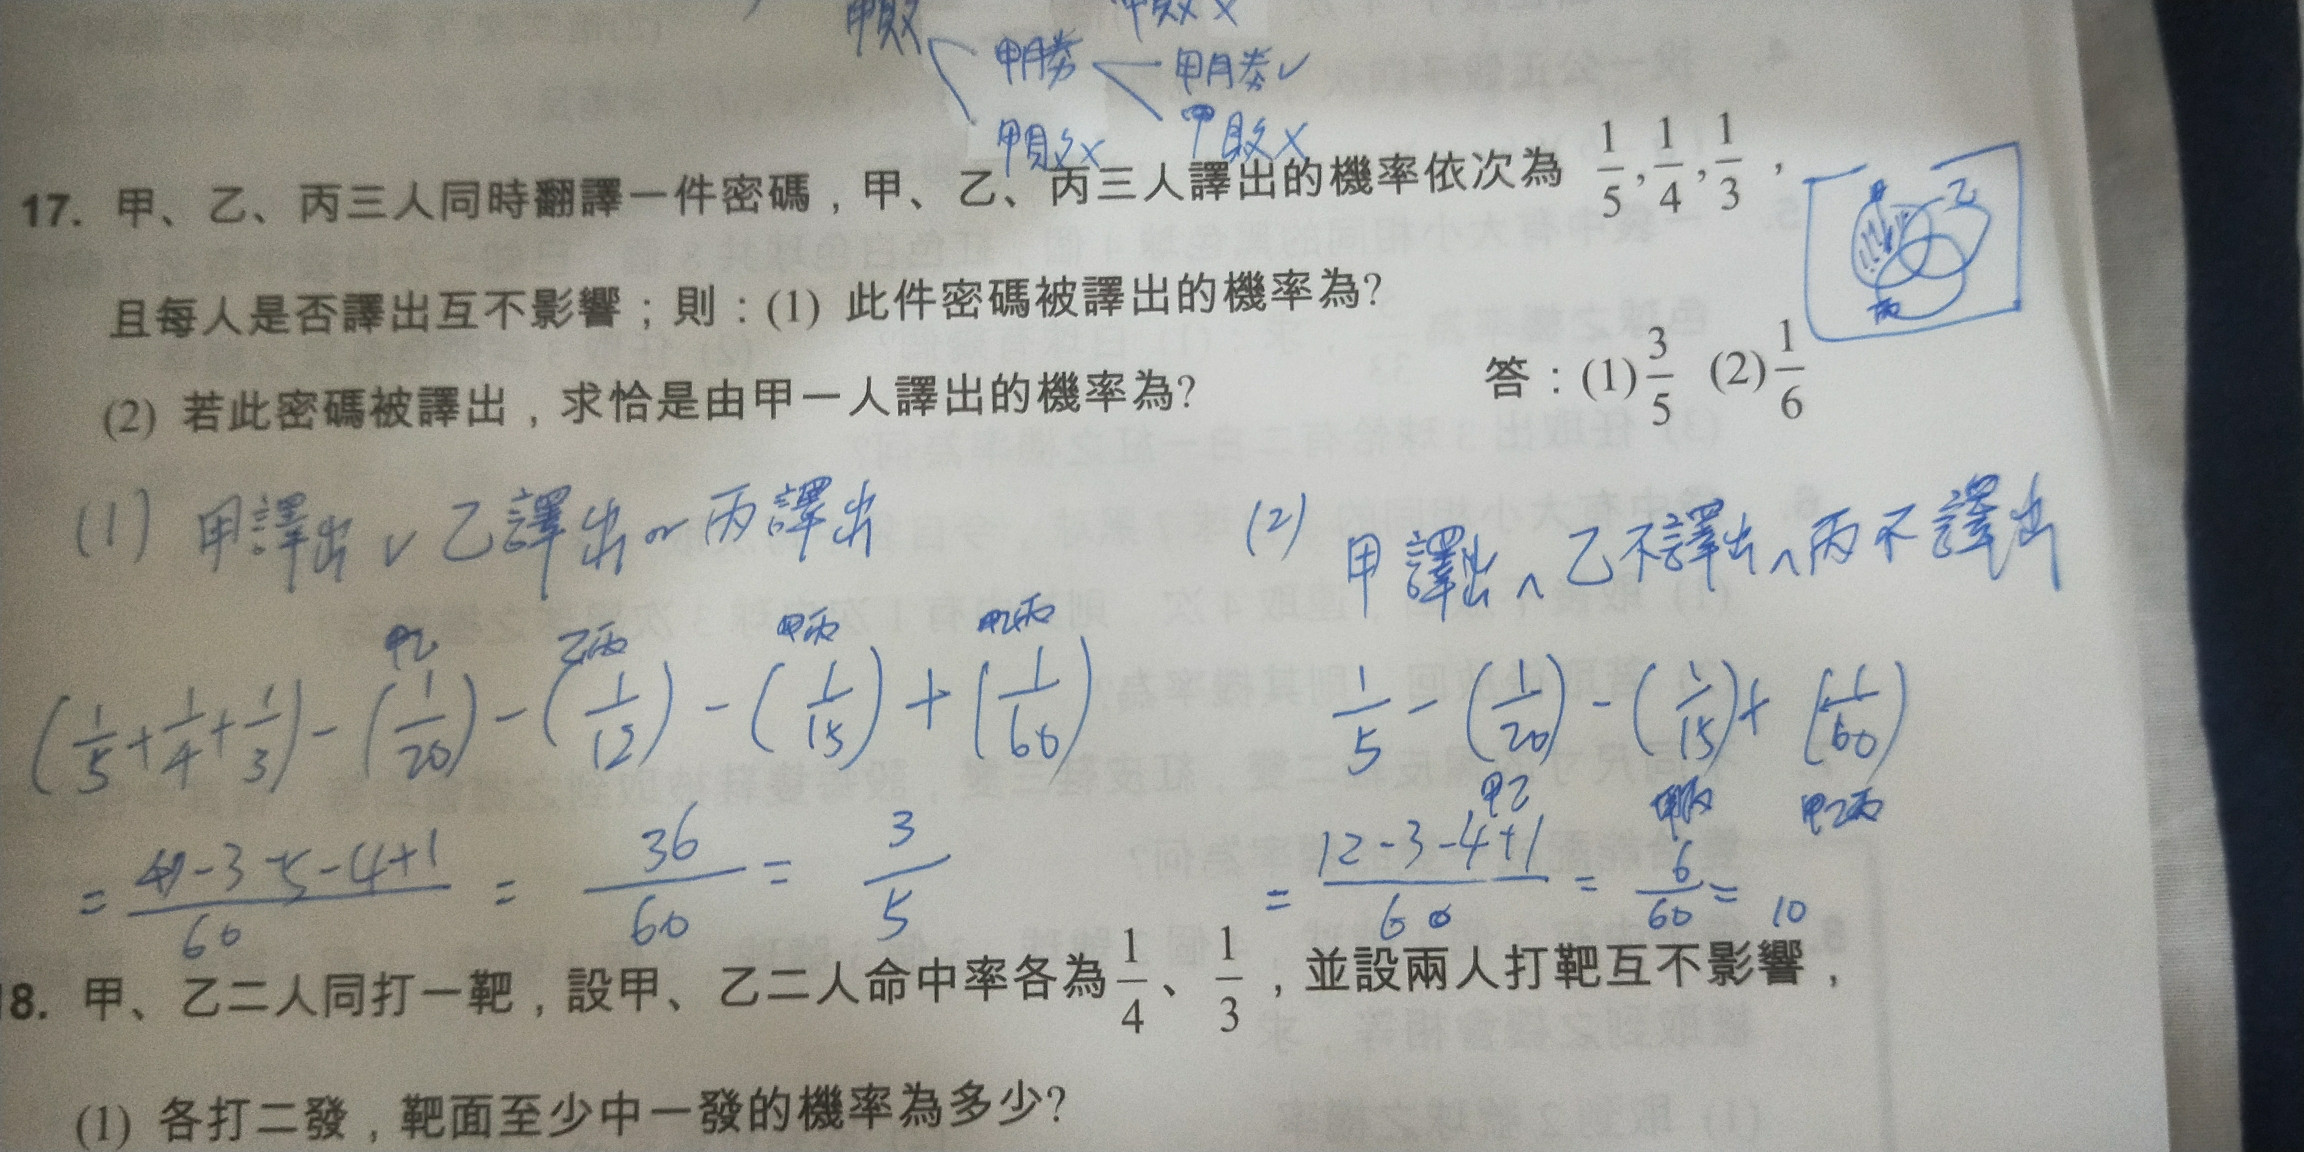 甲敗 甲敗×
甲勝 甲勝✓
甲敗× 甲敗×
17. 甲、乙、丙三人同時翻譯一件密碼，甲、乙、丙三人譯出的機率依次為 1/5, 1/4, 1/3，
甲 乙
丙
且每人是否譯出互不影響；則：(1) 此件密碼被譯出的機率為?
(2) 若此密碼被譯出，求恰是由甲一人譯出的機率為? 答：(1) 3/5 (2) 1/6
(1) 甲譯出 ∨ 乙譯出 or 丙譯出
(2) 甲譯出 ∧ 乙不譯出 ∧ 丙不譯出
甲乙 乙丙 甲丙 甲乙丙
(1/5+1/4+1/3)-(1/20)-(1/12)-(1/15)+(1/60)
1/5-(1/20)-(1/15)+(1/60)
甲乙 甲丙 甲乙丙
= (47-3-5-4+1)/60 = 36/60 = 3/5
= (12-3-4+1)/60 = 6/60 = 10
18. 甲、乙二人同打一靶，設甲、乙二人命中率各為 1/4、1/3，並設兩人打靶互不影響，
(1) 各打二發，靶面至少中一發的機率為多少?